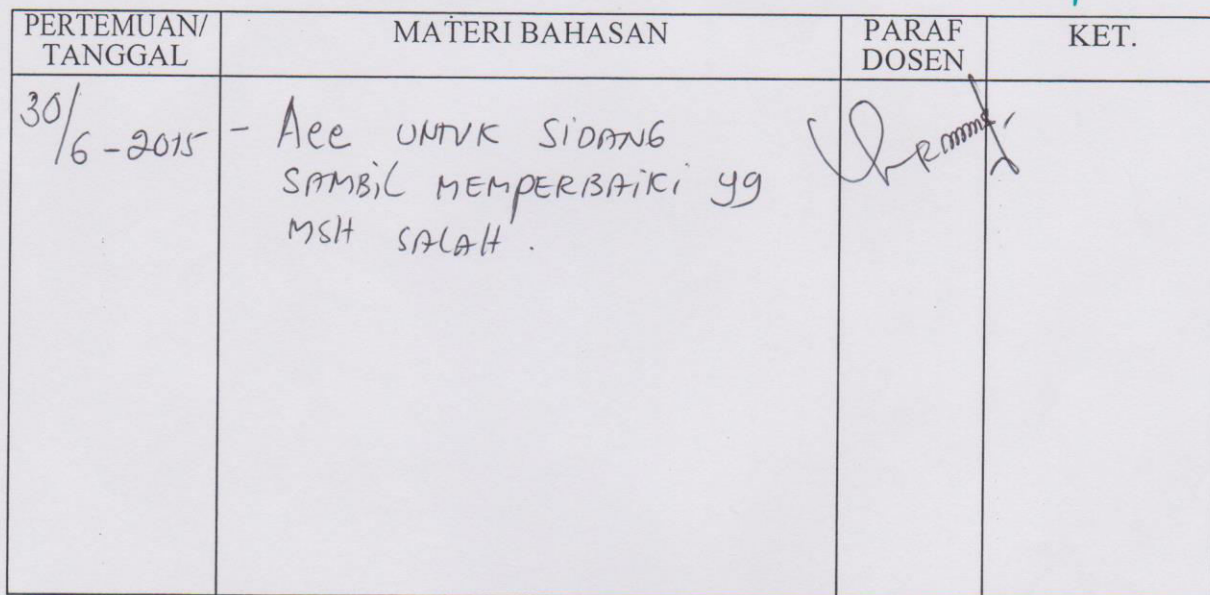 PERTEMUAN/
TANGGAL
MATERI BAHASAN
PARAF
DOSEN
KET.
30/6-2015
- Acc UNTUK SIDANG
SAMBIL MEMPERBAIKI yg
MSH SALAH.